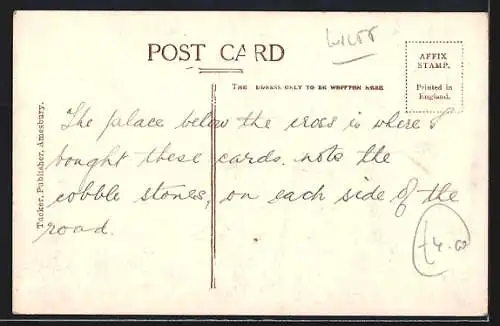 WILTS
POST CARD
AFFIX
STAMP.
Printed in
England.
THE ADDRESS ONLY TO BE WRITTEN HERE
Tucker, Publisher, Amesbury.
The palace below the cross is where I
bought these cards. note the
cobble stones, on each side of the
road.
£4.00